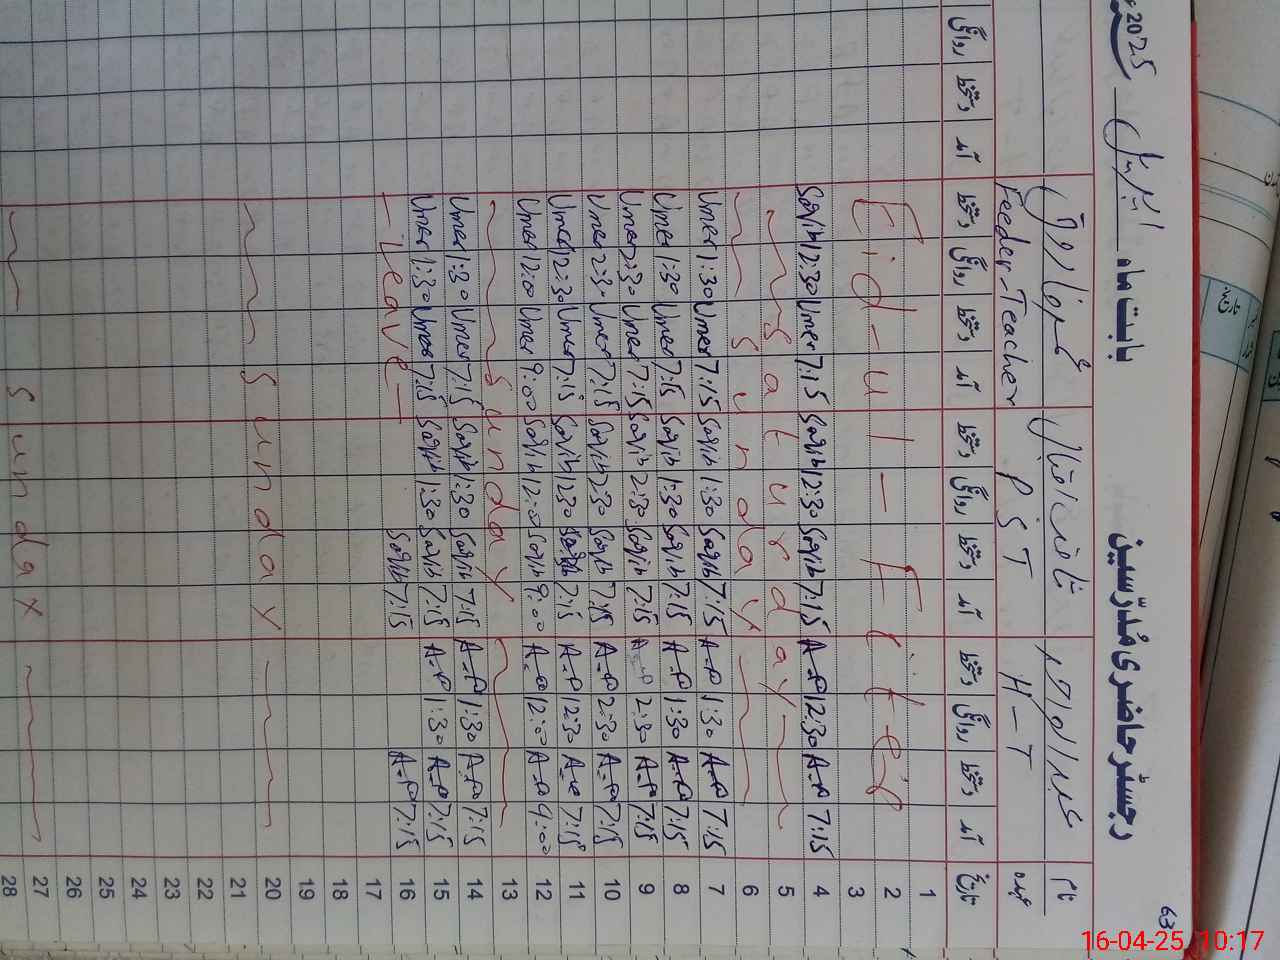 رجسٹر حاضری مُدرّسین بابت ماہ اپریل 2025ء
63
نام عبدالواحد ثاقب اقبال عمر فاروق
عہدہ H-T P.S.T Feeder-Teacher
تاریخ آمد دستخط روانگی دستخط آمد دستخط روانگی دستخط آمد دستخط روانگی دستخط آمد دستخط روانگی
1
2 Eid-ul-Fiter
3
4 7:15 12:30 7:15 Saqib 12:30 Saqib 7:15 Umer 12:30 Saqib
5 Saturday
6 Sunday
7 7:15 1:30 7:15 Saqib 1:30 Saqib 7:15 Umer 1:30 Umer
8 7:15 1:30 7:15 Saqib 1:30 Saqib 7:15 Umer 1:30 Umer
9 7:15 2:30 7:15 Saqib 2:30 Saqib 7:15 Umer 2:30 Umer
10 7:15 2:30 7:15 Saqib 2:30 Saqib 7:15 Umer 2:30 Umer
11 7:15 12:30 7:15 Saqib 12:30 Saqib 7:15 Umer 12:30 Umer
12 9:00 12:00 9:00 Saqib 12:00 Saqib 9:00 Umer 12:00 Umer
13 Sunday
14 7:15 1:30 7:15 Saqib 1:30 Saqib 7:15 Umer 1:30 Umer
15 7:15 1:30 7:15 Saqib 1:30 Saqib 7:15 Umer 1:30 Umer
16 7:15 7:15 Saqib -Leave-
17
18
19
20 Sunday
21
22
23
24
25
26
27 Sunday
28
تاریخ
16-04-25 10:17